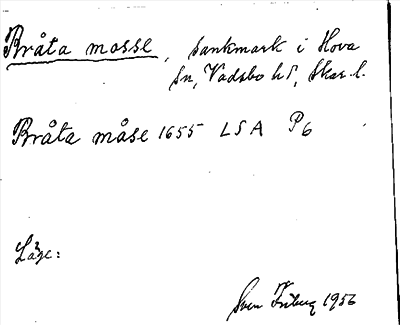 Bråta mosse, sankmark i Hova
sn, Vadsbo hd, Skar. l.
Bråta måse 1655 LSA P6
Läge:
Sven Friberg 1956